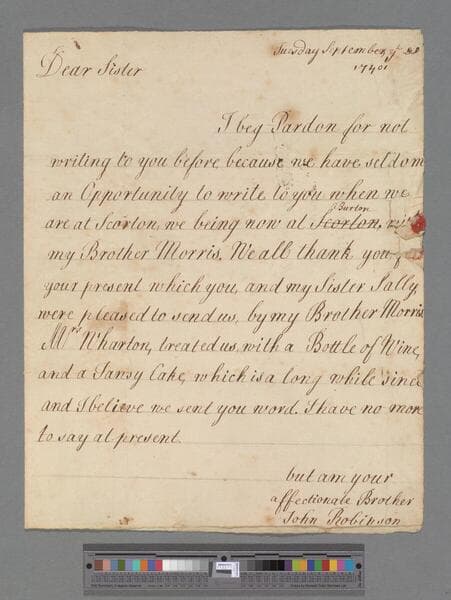 Tuesday September ye
1740
Dear Sister
I beg Pardon for not
writing to you before because we have seldom
an Opportunity to write to you when we
Burton
are at Scorton, we being now at Scorton,
my Brother Morris. We all thank you
your present which you, and my Sister Sally,
were pleased to send us, by my Brother Morris
Mrs Wharton, treated us, with a Bottle of Wine,
and a Tansy Cake, which is a long while since
and I believe we sent you word. I have no more
to say at present
but am your
affectionate Brother
John Robinson